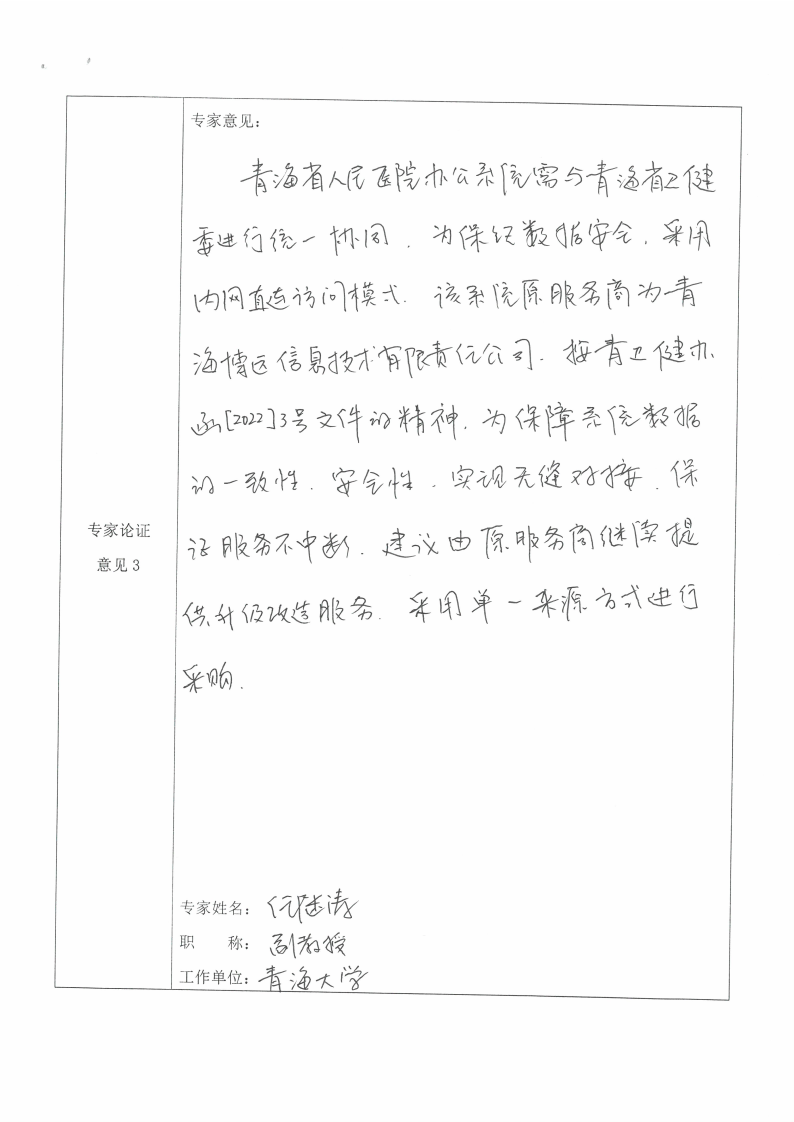 专家意见：
青海省人民医院办公系统需与青海省卫健
委进行统一协同，为保证数据安全，采用
内网直连访问模式．该系统原服务商为青
海博远信息技术有限责任公司．按青卫健办
函[2022]3号文件的精神，为保障系统数据
的一致性、安全性，实现无缝对接，保
证服务不中断，建议由原服务商继续提
供升级改造服务．采用单一来源方式进行
采购．
专家论证
意见3
专家姓名：
职 称：副教授
工作单位：青海大学